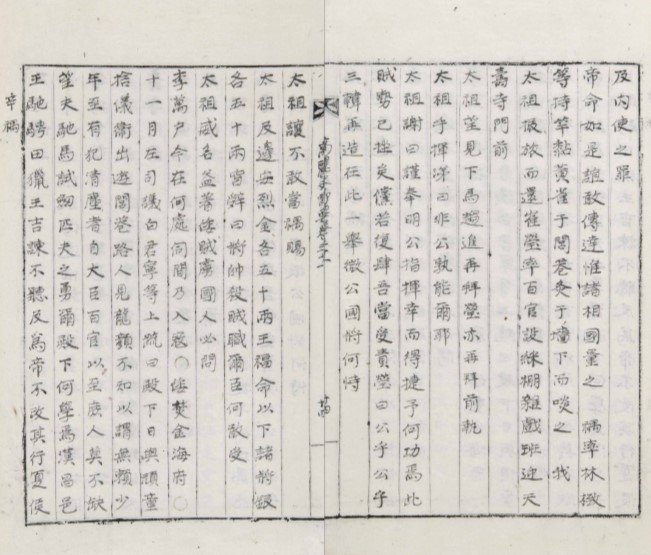 及內使之罪
帝命如是誰敢傳達惟諸相國量之 禑率林樕
等持竿黏黃雀于閭巷炙于墻下而啖之 我
太祖振旅而還崔瑩率百官設綵棚雜戲班迎天
壽寺門前
太祖望見下馬趨進再拜瑩亦再拜前執
太祖手揮涕曰非公孰能爾耶
太祖謝曰謹奉明公指揮幸而得捷予何功焉此
賊勢已挫矣儻若復肆吾當受責瑩曰公乎公乎
三韓再造在此一舉微公國將何恃
高麗史節要卷三十一
太祖讓不敢當禑賜
太祖及邊安烈金各五十兩王福命以下諸將銀
各五十兩皆辭曰將帥殺賊職爾臣何敢受
太祖威名益著倭賊虜國人必問
李萬戶今在何處伺間乃入寇○倭焚金海府○
十一月左司議白君寧等上疏曰殿下日與頑童
捨儀衛出遊閭巷路人見龍顏不知以謂無賴少
年至有犯清塵者自大臣百官以至庶人莫不缺
望夫馳馬試劒匹夫之勇爾殿下何學焉漢昌邑
王馳騁田獵王吉諫不聽及爲帝不改其行夏侯
辛禑